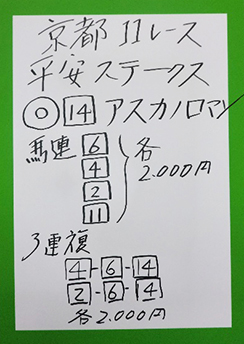 京都 11レース
平安ステークス
◎ 14 アスカノロマン
馬連 6
4
2
11
各
2.000円
3連複
4-6-14
2-6-4
各2.000円